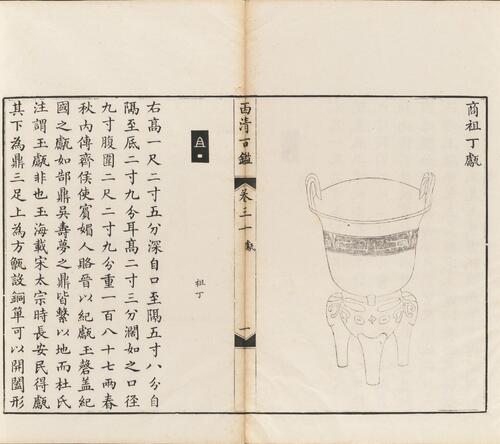 商祖丁甗
西清古鑑
卷三十
甗
一
祖丁
右高一尺二寸五分深自口至隔五寸八分自
隔至底二寸九分耳高二寸三分濶如之口徑
九寸腹圍二尺二寸九分重一百八十七兩春
秋內傳齊侯使賓媚人賂晉以紀甗玉磬盖紀
國之甗如郜鼎吳壽夢之鼎皆繫以地而杜氏
注謂玉甗非也玉海載宋太宗時長安民得甗
其下為鼎三足上為方甑設銅箄可以開闔形